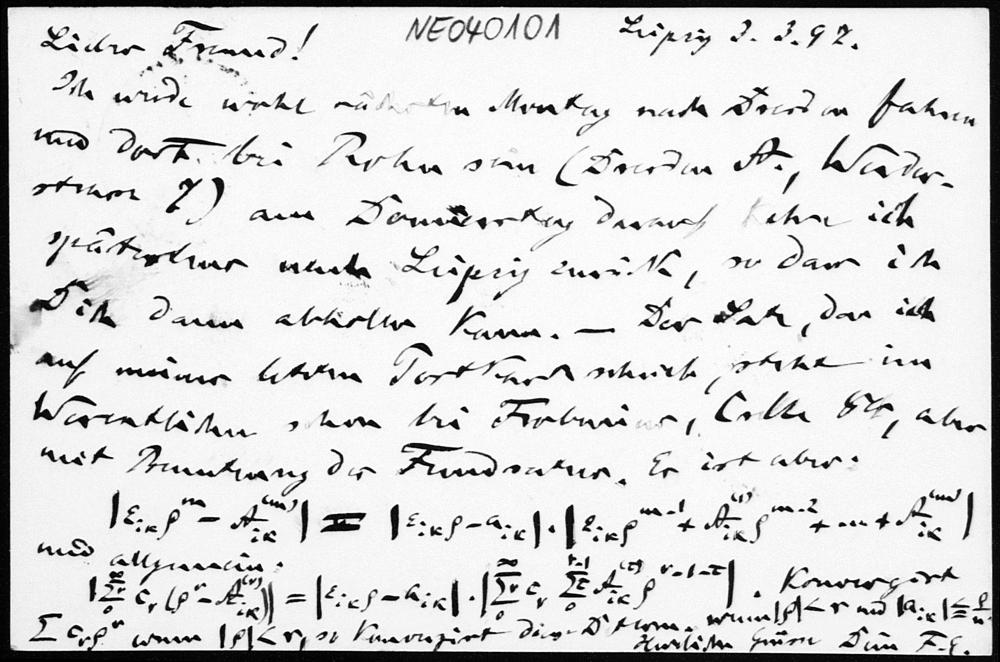 NE040101
Leipzig 3.3.97.
Lieber Freund!
Ich werde wohl nächsten Montag nach Dresden fahren
und dort bei Rohn sein (Dresden A., Werder-
strasse 7) am Donnerstag darauf kehre ich
spätestens nach Leipzig zurück, so dass ich
Dich dann abholen kann. — Der Satz, den ich
auf meiner letzten Postkarte schrieb, steht im
Wesentlichen schon bei Frobenius, Crelle 84, aber
mit Benutzung des Fundsatzes. Es ist aber:
|ε_{ik}ρ^m − A_{ik}^{(m)}| = |ε_{ik}ρ − a_{ik}| · |ε_{ik}ρ^{m-1} + A_{ik}^{(1)}ρ^{m-2} + ... + A_{ik}^{(m)}|
und allgemein:
|∑_0^∞ c_r(ρ^r − A_{ik}^{(r)})| = |ε_{ik}ρ − a_{ik}| · |∑_0^∞ c_r ∑_0^{r-1} A_{ik}^{(τ)} ρ^{r-1-τ}|. Konvergirt
∑ c_r ρ^r wenn |ρ| < r, so konvergirt diese Determ. wenn |ρ| < r und |a_{ik}| ≦
Herzliche Grüsse Dein F. E.